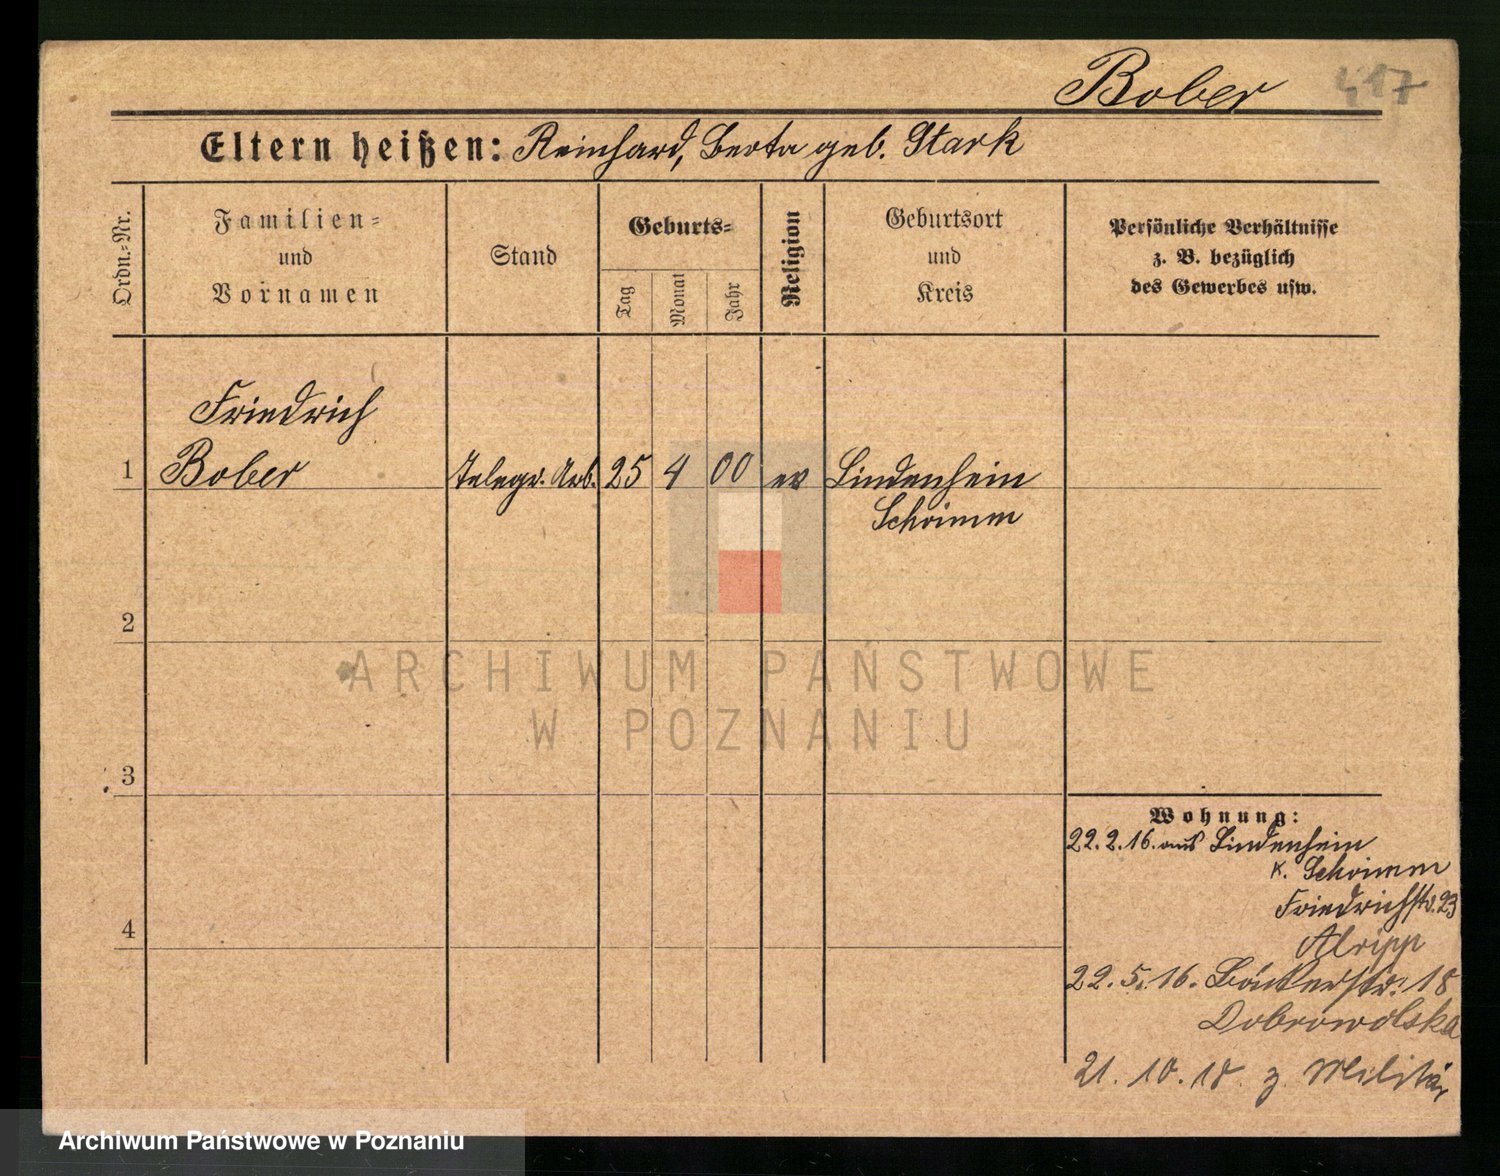 Bober 417
Eltern heißen: Reinhard, Berta geb. Stark
Ordn.=Nr.
Familien=
und
Vornamen
Stand
Geburts=
Tag
Monat
Jahr
Religion
Geburtsort
und
Kreis
Persönliche Verhältnisse
z. B. bezüglich
des Gewerbes usw.
Friedrich
1 Bober Telegr. Arb. 25 4 00 ev Lindenhein
Schrimm
2
3
4
Wohnung:
22. 2. 16. aus Lindenhein
K. Schrimm
Friedrichstr. 23
22. 5. 16. Bäckerstr. 18
Dobrowolska
21. 10. 18. z. Militär
ARCHIWUM PAŃSTWOWE
W POZNANIU
Archiwum Państwowe w Poznaniu